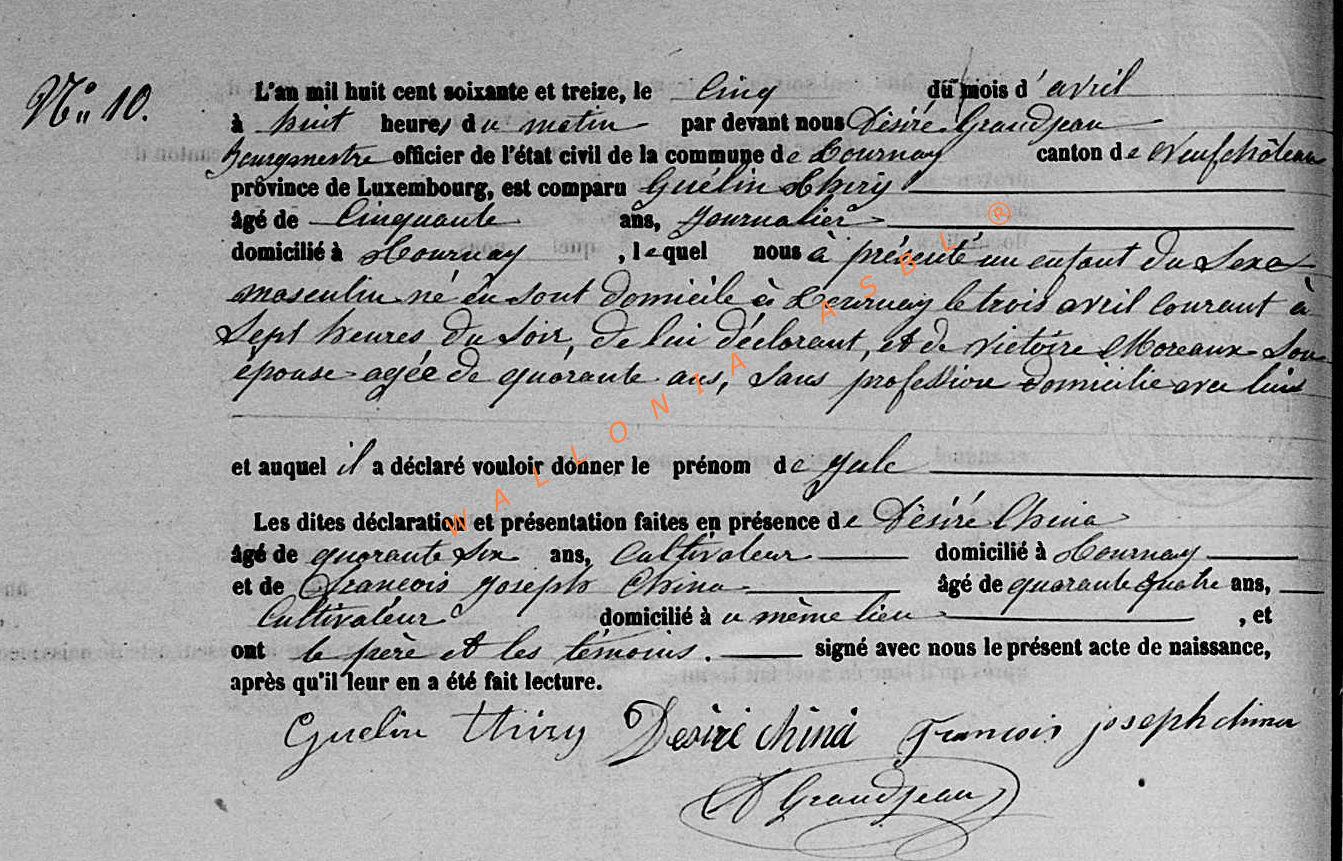 N° 10.
L'an mil huit cent soixante et treize, le Cinq du mois d'avril
à huit heures du matin par devant nous Désiré Grandjean
Bourgmestre officier de l'état civil de la commune de Tournay canton de Neufchâteau
province de Luxembourg, est comparu Guélin Thiry
âgé de Cinquante ans, Journalier
domicilié à Tournay, lequel nous à présenté un enfant du Sexe
masculin né en sont domicile à Tournay le trois avril courant à
Sept heures du Soir, de lui déclarant, et de Victoire Moreaux Son
épouse agée de quarante ans, Sans profession domicilie avec luis
et auquel il a déclaré vouloir donner le prénom de Jule
Les dites déclaration et présentation faites en présence de Désiré China
âgé de quarante Six ans, Cultivateur domicilié à Tournay
et de François Joseph China âgé de quarante quatre ans,
Cultivateur domicilié à u même lieu, et
ont le père et les témoins. signé avec nous le présent acte de naissance,
après qu'il leur en a été fait lecture.
Guelin Thiry Desiré China François joseph china
D Grandjean
WALLONIA ASBL ®